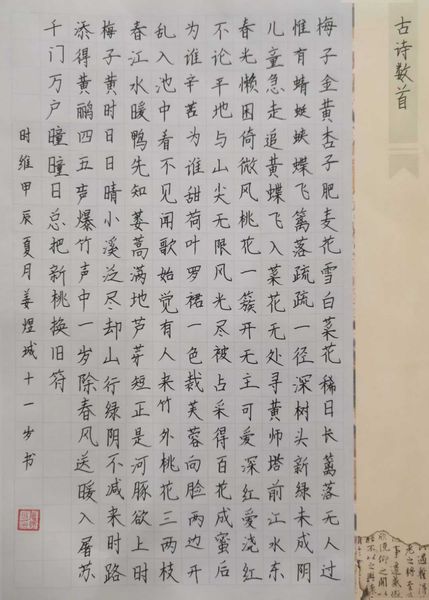 古诗数首
梅子金黄杏子肥麦花雪白菜花稀日长篱落无人过
惟有蜻蜓蛱蝶飞篱落疏疏一径深树头新绿未成阴
儿童急走追黄蝶飞入菜花无处寻黄师塔前江水东
春光懒困倚微风桃花一簇开无主可爱深红爱浅红
不论平地与山尖无限风光尽被占采得百花成蜜后
为谁辛苦为谁甜荷叶罗裙一色裁芙蓉向脸两边开
乱入池中看不见闻歌始觉有人来竹外桃花三两枝
春江水暖鸭先知蒌蒿满地芦芽短正是河豚欲上时
梅子黄时日日晴小溪泛尽却山行绿阴不减来时路
添得黄鹂四五声爆竹声中一岁除春风送暖入屠苏
千门万户曈曈日总把新桃换旧符
时维甲辰夏月姜煜城十一岁书